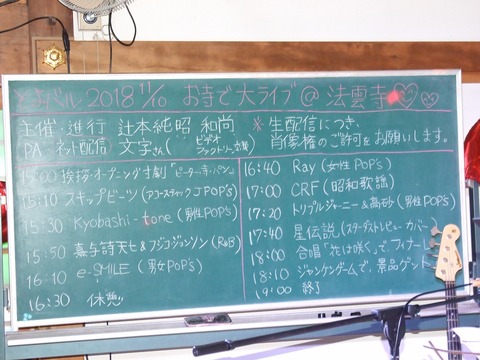 2018 11/10 お寺で大ライブ@法雲寺
主催・進行 辻本純昭 和尚
PA・ネット配信 文字さん(ビデオファクトリー
※生配信につき
肖像権のご許可をお願いします。
15:00 挨拶・オープニング寸劇「ピーター・パン」
15:10 スキップビーツ(アコースティックJPOP'S)
15:30 Kyobashi-tone(男性POP'S)
15:50 嘉与詩天七&フジコジョンソン(R&B)
16:10 e-SMILE(男女POP'S)
16:30 休憩
16:40 Ray(女性POP'S)
17:00 CRF(昭和歌謡)
17:20 トリプルジャーニー&高砂(男性POP'S)
17:40 星伝説(スターダストレビューカバー)
18:00 合唱「花は咲く」で、フィナーレ
18:10 ジャンケンゲームで、景品ゲット
19:00 終了